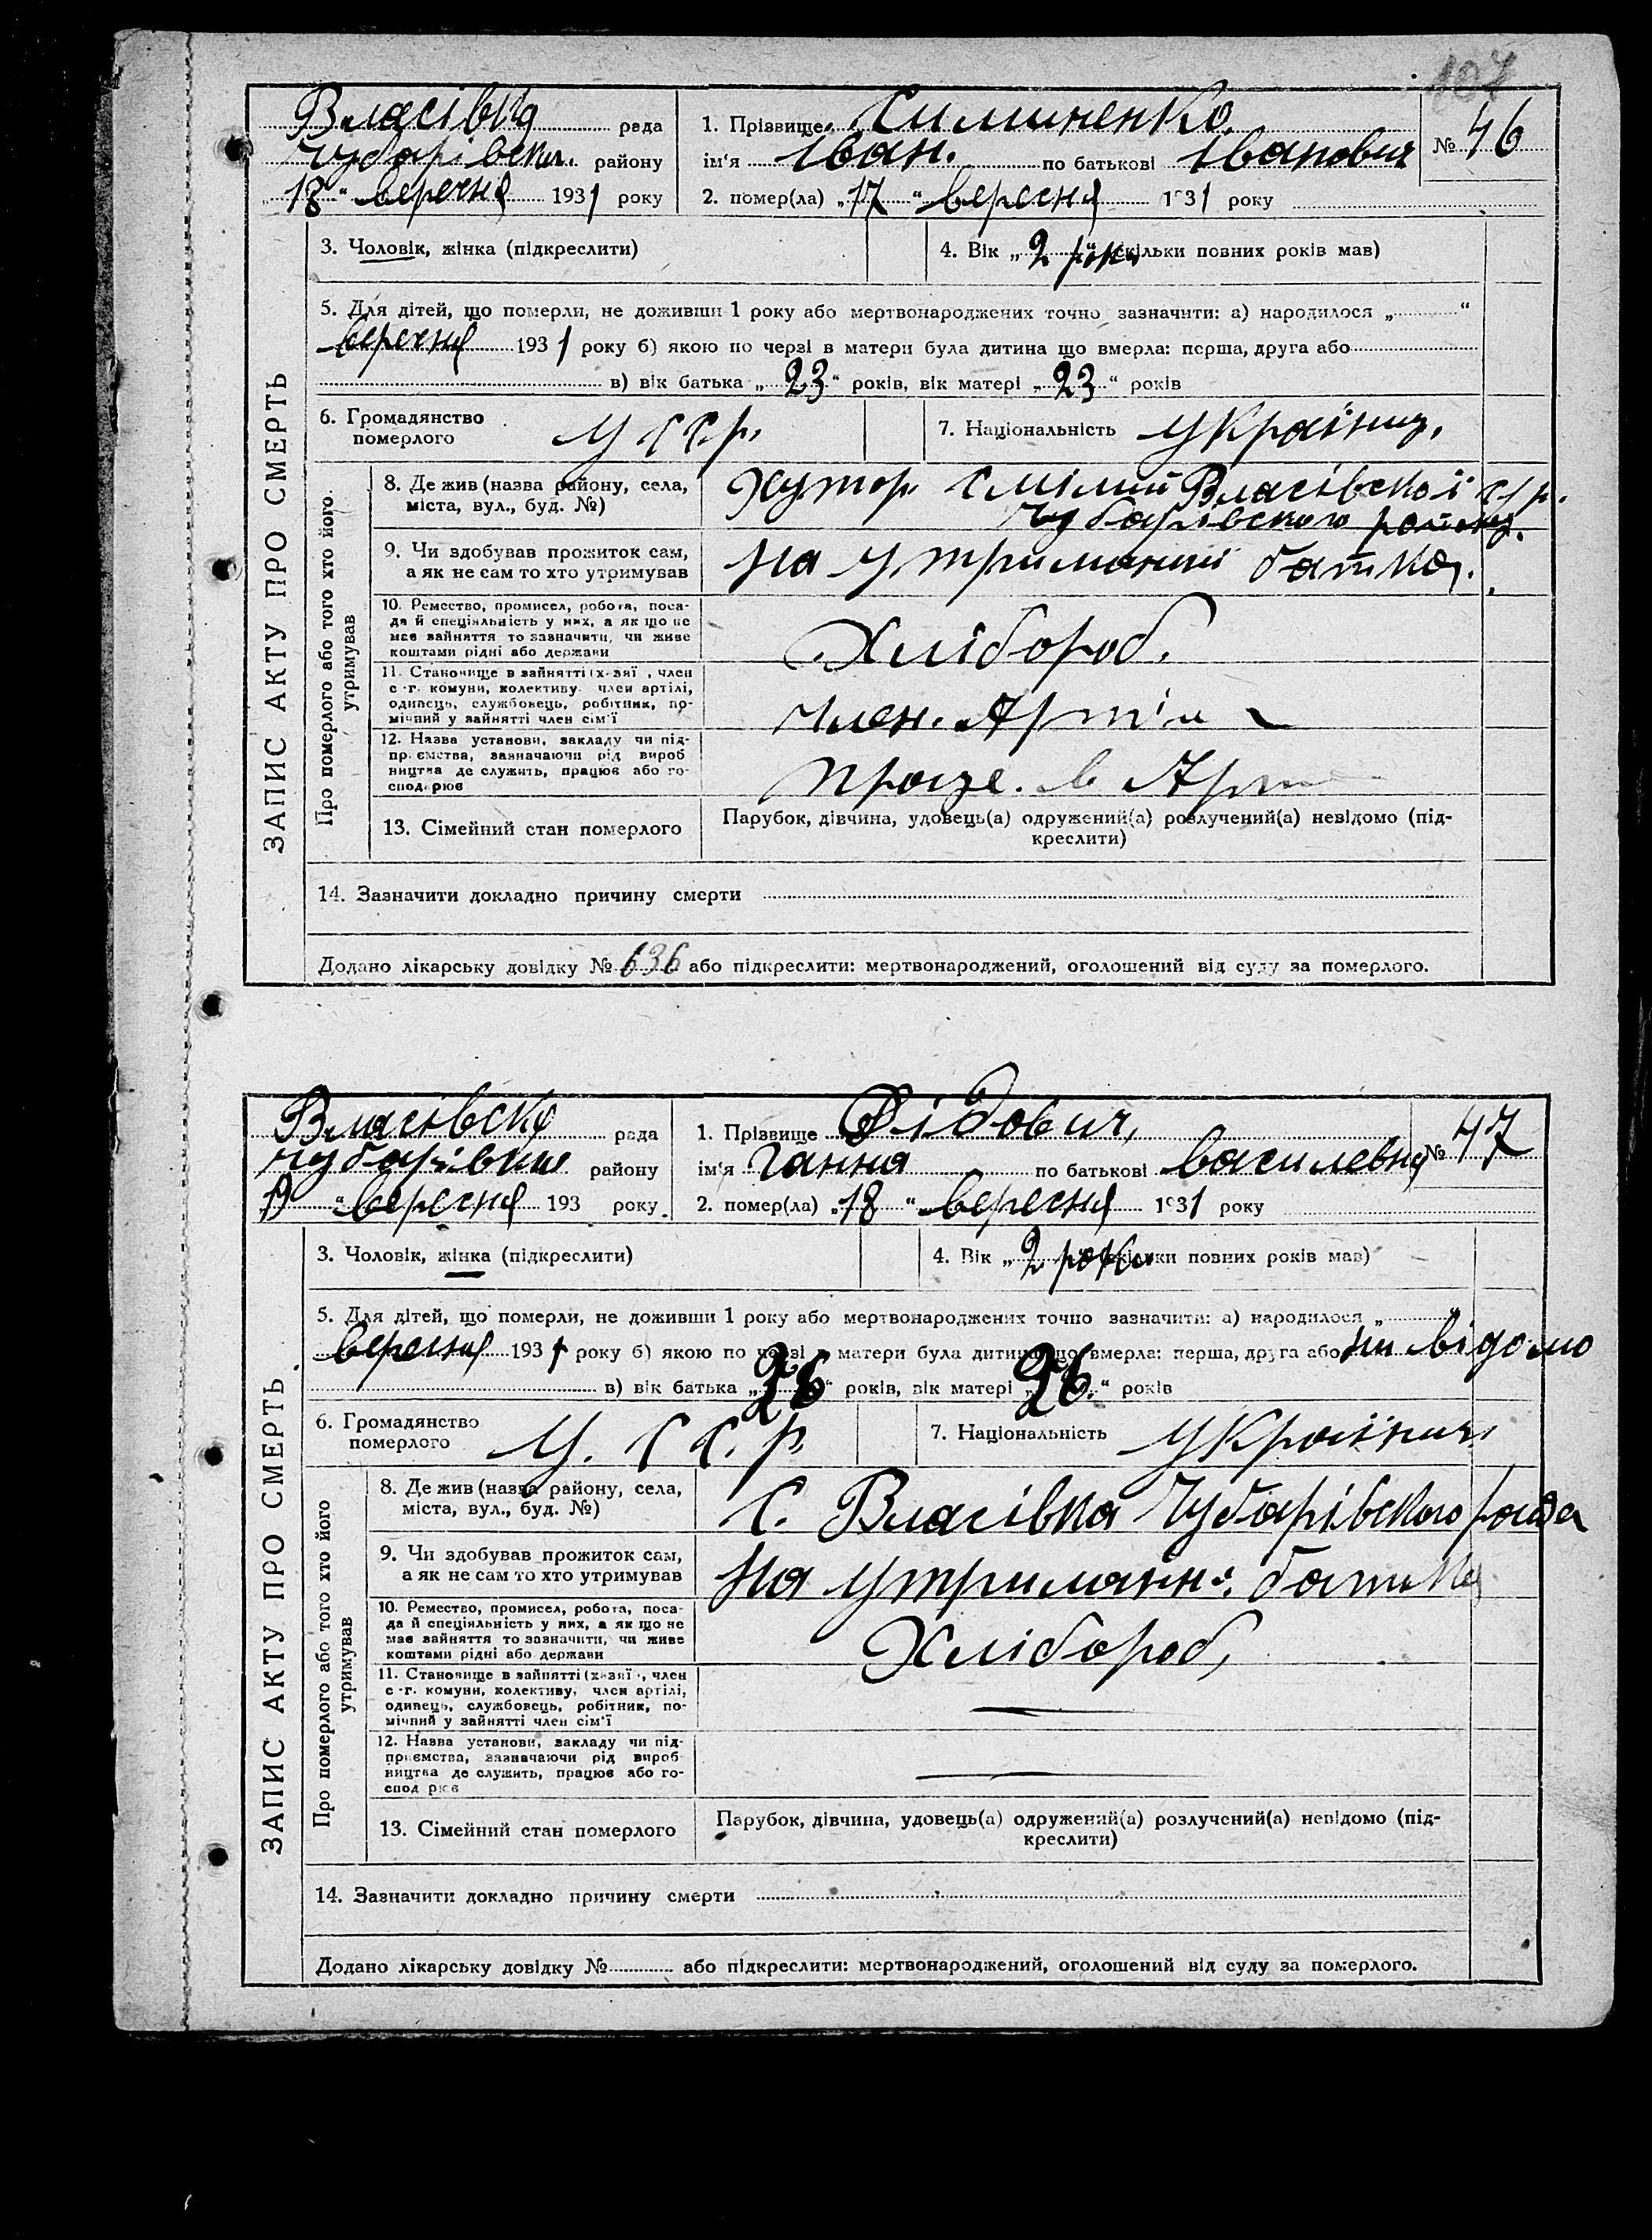 107
Власівка рада
Чубарівськ. району
„18“ вересня 1931 року
1. Прізвище Симиненко.
ім'я Іван. по батькові Іванович
№ 46
2. помер(ла) „17“ вересня 1931 року
3. Чоловік, жінка (підкреслити)
4. Вік „2 роки“ (скільки повних років мав)
5. Для дітей, що померли, не доживши 1 року або мертвонароджених точно зазначити: а) народилося „ “
вересня 1931 року б) якою по черзі в матери була дитина що вмерла: перша, друга або
в) вік батька „23“ років, вік матері „23“ років
6. Громадянство
померлого
У С С р.
7. Національність Україниц.
ЗАПИС АКТУ ПРО СМЕРТЬ
Про померлого або того хто його
утримував
8. Де жив (назва району, села,
міста, вул., буд. №)
Хутор Смілий Власівської с/р.
Чубарівського району.
9. Чи здобував прожиток сам,
а як не сам то хто утримував
На утриманні батька.
10. Ремество, промисел, робота, поса-
да й спеціяльність у них, а як що не
має зайняття то зазначити, чи живе
коштами рідні або держави
Хлібороб.
11. Становище в зайнятті (х-зяї, член
с-г. комуни, колективу, член артілі,
одинець, службовець, робітник, по-
мічний у зайнятті член сім'ї
Член. Артіл
12. Назва установи, закладу чи під-
приємства, зазначаючи рід вироб
ництва де служить, працює або го-
сподарює
Праце. в Арт
13. Сімейний стан померлого
Парубок, дівчина, удовець(а) одружений(а) розлучений(а) невідомо (під-
креслити)
14. Зазначити докладно причину смерти
Додано лікарську довідку № 636 або підкреслити: мертвонароджений, оголошений від суду за померлого.
Власівська рада
Чубарівськ району
19 “ вересня 193 року.
1. Прізвище Дідович,
ім'я Ганна по батькові Василевна
№ 47
2. помер(ла) „18“ вересня 1931 року
3. Чоловік, жінка (підкреслити)
4. Вік „2 роки“ (скільки повних років мав)
5. Для дітей, що померли, не доживши 1 року або мертвонароджених точно зазначити: а) народилося „ “
вересня 1931 року б) якою по черзі в матери була дитина що вмерла: перша, друга або ни відомо
в) вік батька „26“ років, вік матері „26.“ років
6. Громадянство
померлого
У. С С. р.
7. Національність Українич
ЗАПИС АКТУ ПРО СМЕРТЬ
Про померлого або того хто його
утримував
8. Де жив (назва району, села,
міста, вул., буд. №)
С. Власівка Чубарівського
9. Чи здобував прожиток сам,
а як не сам то хто утримував
На утриманні батька
10. Ремество, промисел, робота, поса-
да й спеціяльність у них, а як що не
має зайняття то зазначити, чи живе
коштами рідні або держави
Хлібороб,
11. Становище в зайнятті (х-зяї, член
с-г. комуни, колективу, член артілі,
одинець, службовець, робітник, по-
мічний у зайнятті член сім'ї
12. Назва установи, закладу чи під-
приємства, зазначаючи рід вироб
ництва де служить, працює або го-
сподрює
13. Сімейний стан померлого
Парубок, дівчина, удовець(а) одружений(а) розлучений(а) невідомо (під-
креслити)
14. Зазначити докладно причину смерти
Додано лікарську довідку № або підкреслити: мертвонароджений, оголошений від суду за померлого.